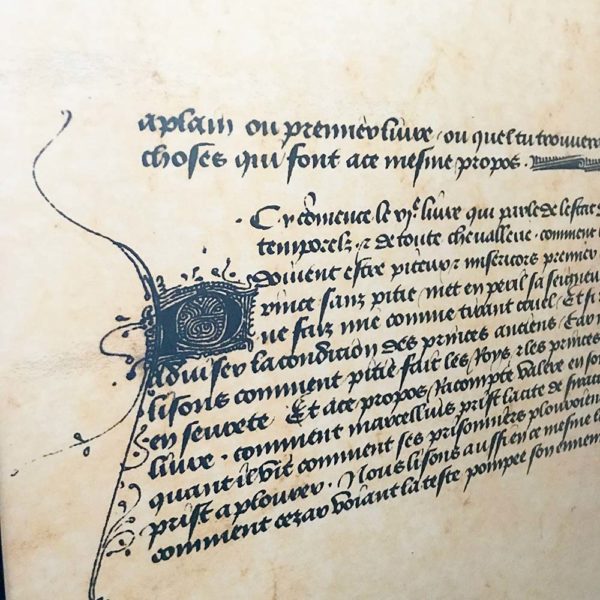 aplain ou premier livre, ou quel tu trouvera
choses qui font a ce mesme propos.
Cy cōmence le vjᵉ livre qui parle de lestat d
temporelz ⁊ de toute chevallerie. comment l
doivent estre piteux ⁊ misericors premier
Prince sanz pitie, met en peril sa seigneu
ne fais mie comme tirant cruel. Et si
adviser la condicion des princes anciens, Car n
lisons comment pitie fait les Roys, ⁊ les princes
en seurete. Et a ce propos Racompte Valere en son
livre. comment marcellius prist la cite de sirac
quant il vit comment ses prisonniers plouroient
prist a plourer. Nous lisons aussi en ce mesme l
comment cezar voiant la teste pompee son ennem